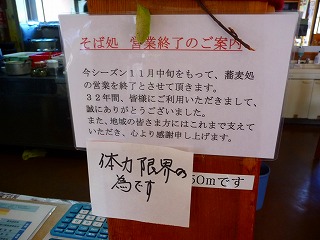 そば処　営業終了のご案内
今シーズン１１月中旬をもって、蕎麦処
の営業を終了とさせて頂きます。
３２年間、皆様にご利用いただきまして、
誠にありがとうございました。
また、地域の皆さま方にはこれまで支えて
いただき、心より感謝申し上げます。
体力限界の
為です
50mです